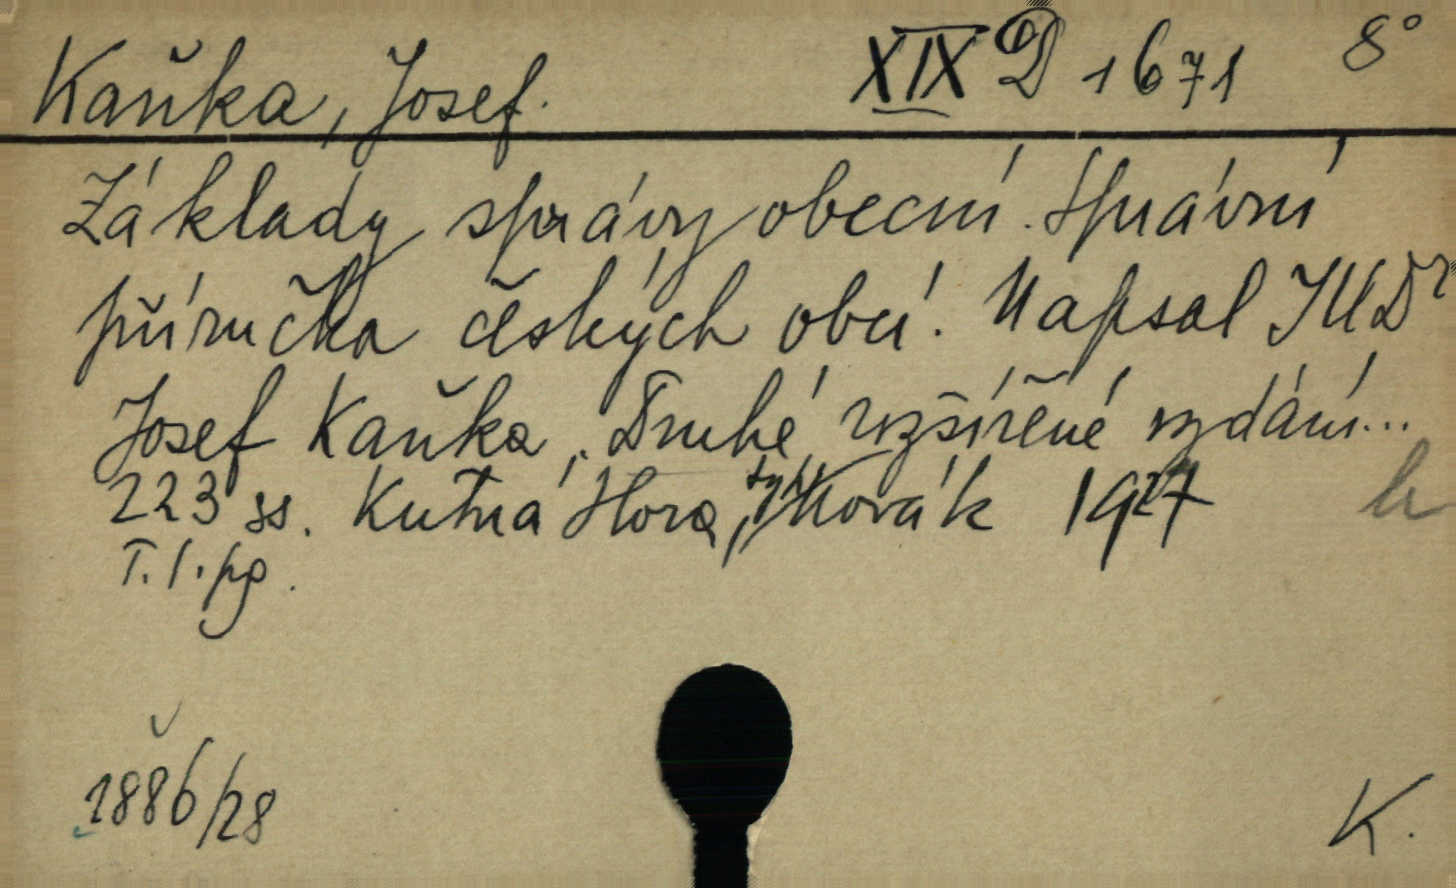 Kaňka, Josef. XIX D 1671 8°
Základy správy obecní. Správní
příručka českých obcí. Napsal JUDr
Josef Kaňka. Druhé rozšířené vydání...
223 ss. Kutná Hora, Novák 1927
T. I. pg.
1886/28
K.